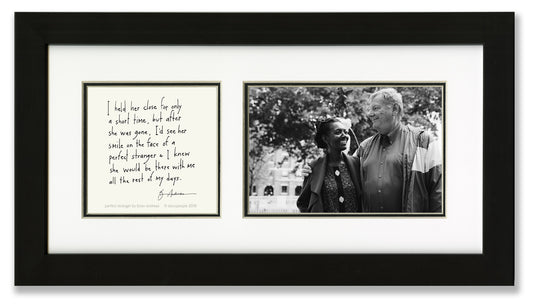 I held her close for only
a short time, but after
she was gone, I'd see her
smile on the face of a
perfect stranger & I knew
she would be there with me
all the rest of my days.
Brian Andreas
perfect stranger by brian andreas © storypeople 2016